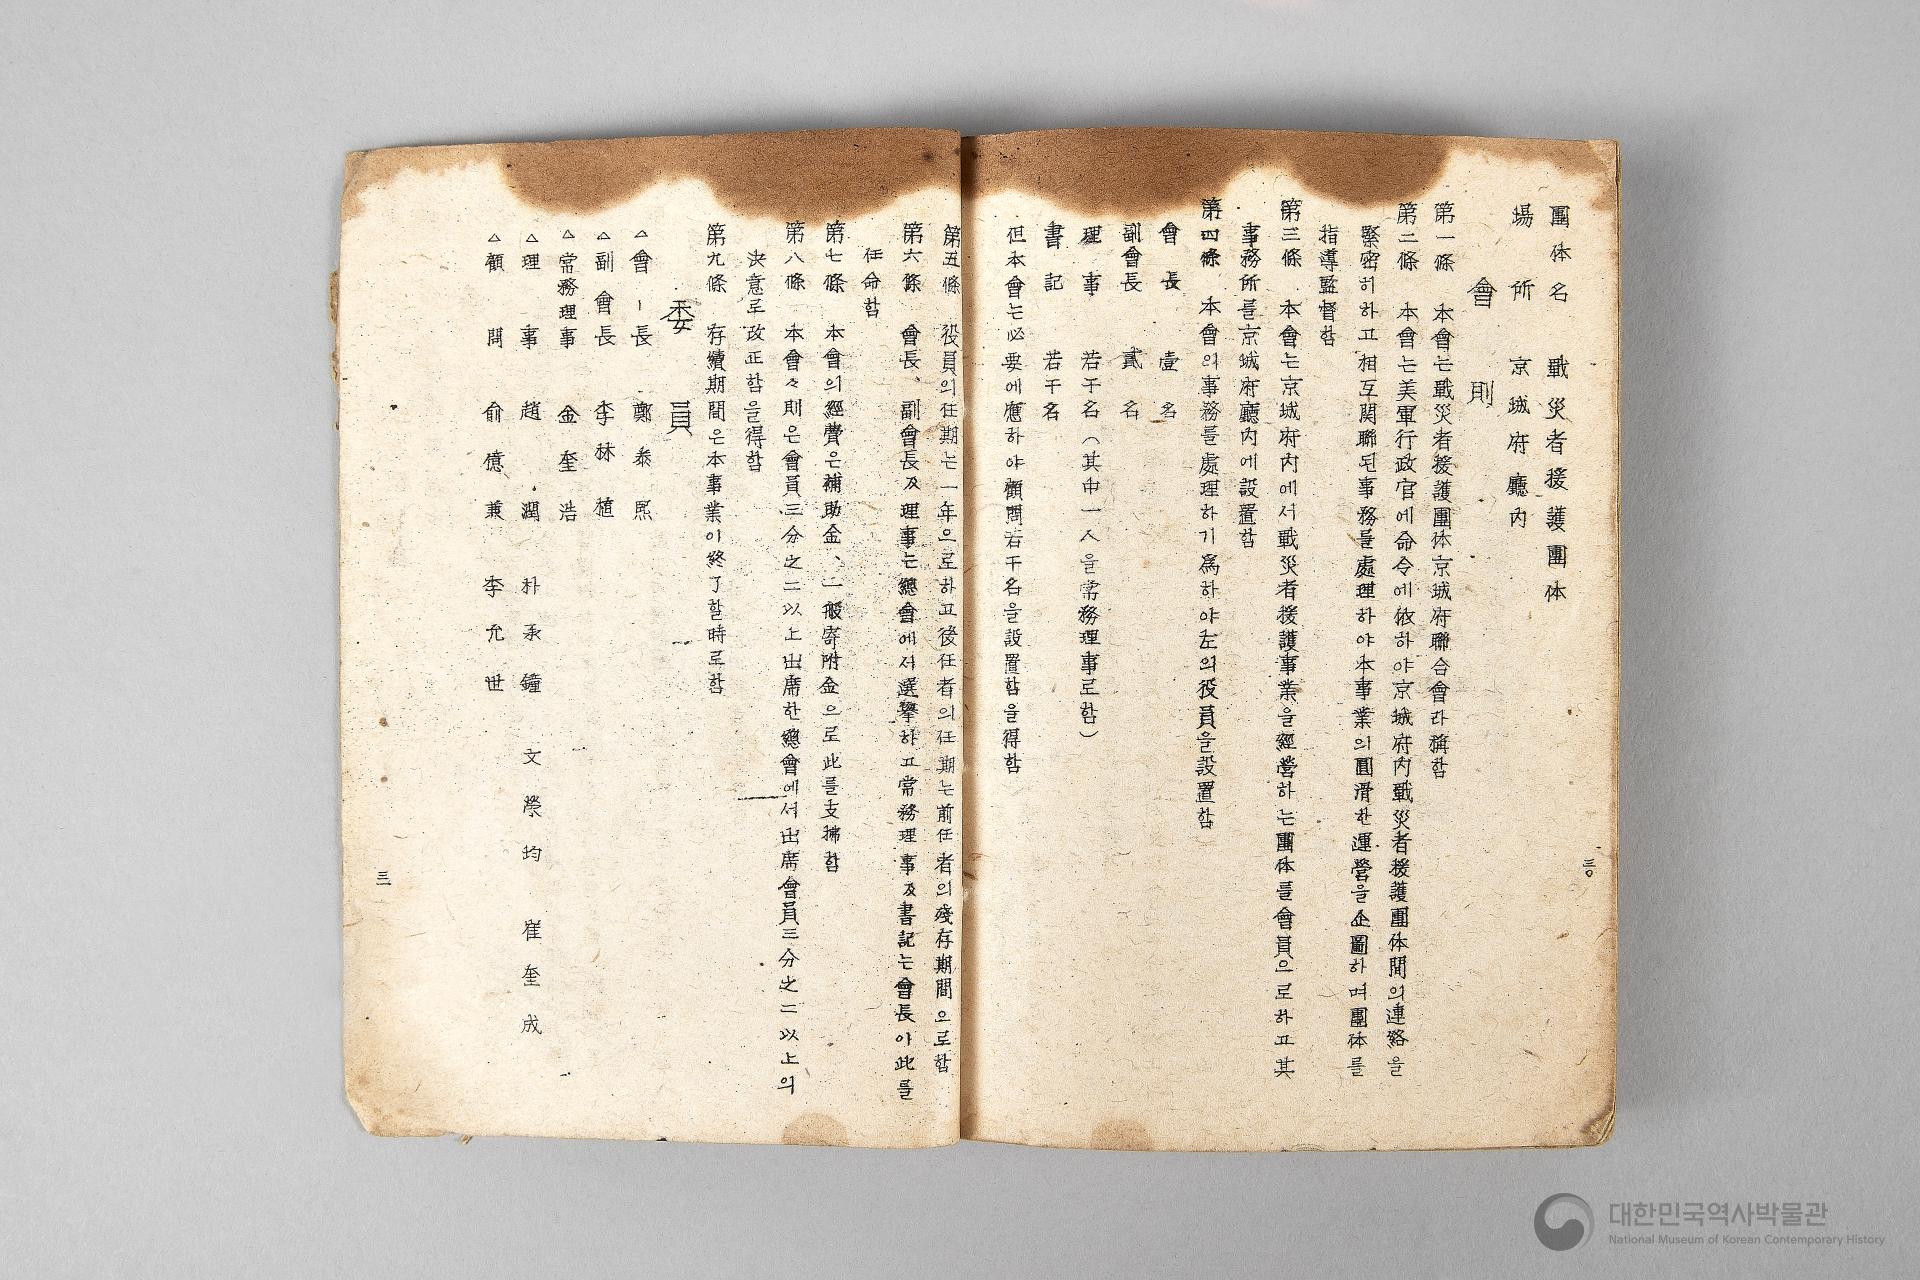 團体名 戰災者援護團体
場所 京城府廳內
會則
第一條 本會는戰災者援護團体京城府聯合會라稱함
第二條 本會는美軍行政官에命令에依하야京城府內戰災者援護團体間의連絡을
緊密히하고相互関聯된事務를處理하야本事業의圓滑한運營을企圖하며團体를
指導監督함
第三條 本會는京城府內에서戰災者援護事業을經營하는團体를會員으로하고其
事務所를京城府廳內에設置함
第四條 本會의事務를處理하기爲하야左의役員을設置함
會長 壹名
副會長 貳名
理事 若干名(其中一人을常務理事로함)
書記 若干名
但本會는必要에應하야顧問若干名을設置함을得함
三〇
第五條 役員의任期는一年으로하고後任者의任期는前任者의殘存期間으로함
第六條 會長、副會長及理事는總會에서選擧하고常務理事及書記는會長이此를
任命함
第七條 本會의經費은補助金、一般寄附金으로此를支拂함
第八條 本會々則은會員三分之二以上出席한總會에서出席會員三分之二以上의
決意로改正함을得함
第九條 存續期間은本事業이終了할時로함
委員
△會長 鄭泰熙
△副會長 李林植
△常務理事 金奎浩
△理事 趙潤 朴承鐘 文榮均 崔奎成
△顧問 俞億兼 李允世
三一
대한민국역사박물관
National Museum of Korean Contemporary History